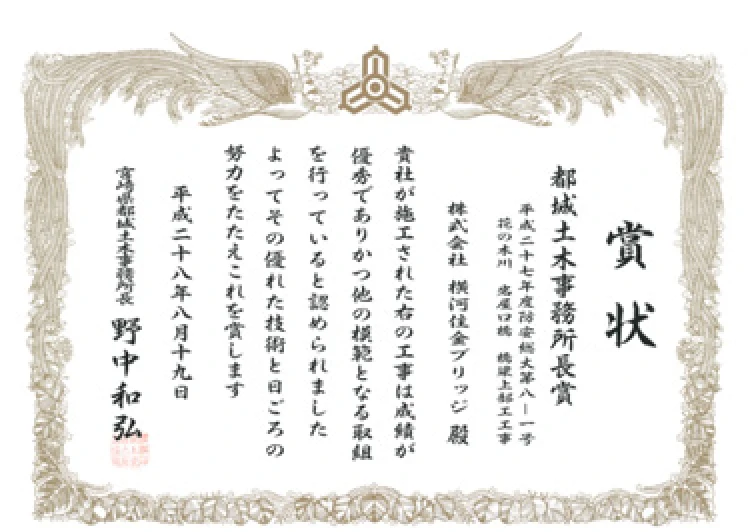 賞状
都城土木事務所長賞
平成二十七年度防安総大第八－一号
花の木川 屋口橋 橋梁上部工工事
株式会社 横河住金ブリッジ 殿
貴社が施工された右の工事は成績が
優秀でありかつ他の模範となる取組
を行っていると認められました
よってその優れた技術と日ごろの
努力をたたえこれを賞します
平成二十八年八月十九日
宮崎県都城土木事務所長 野中和弘